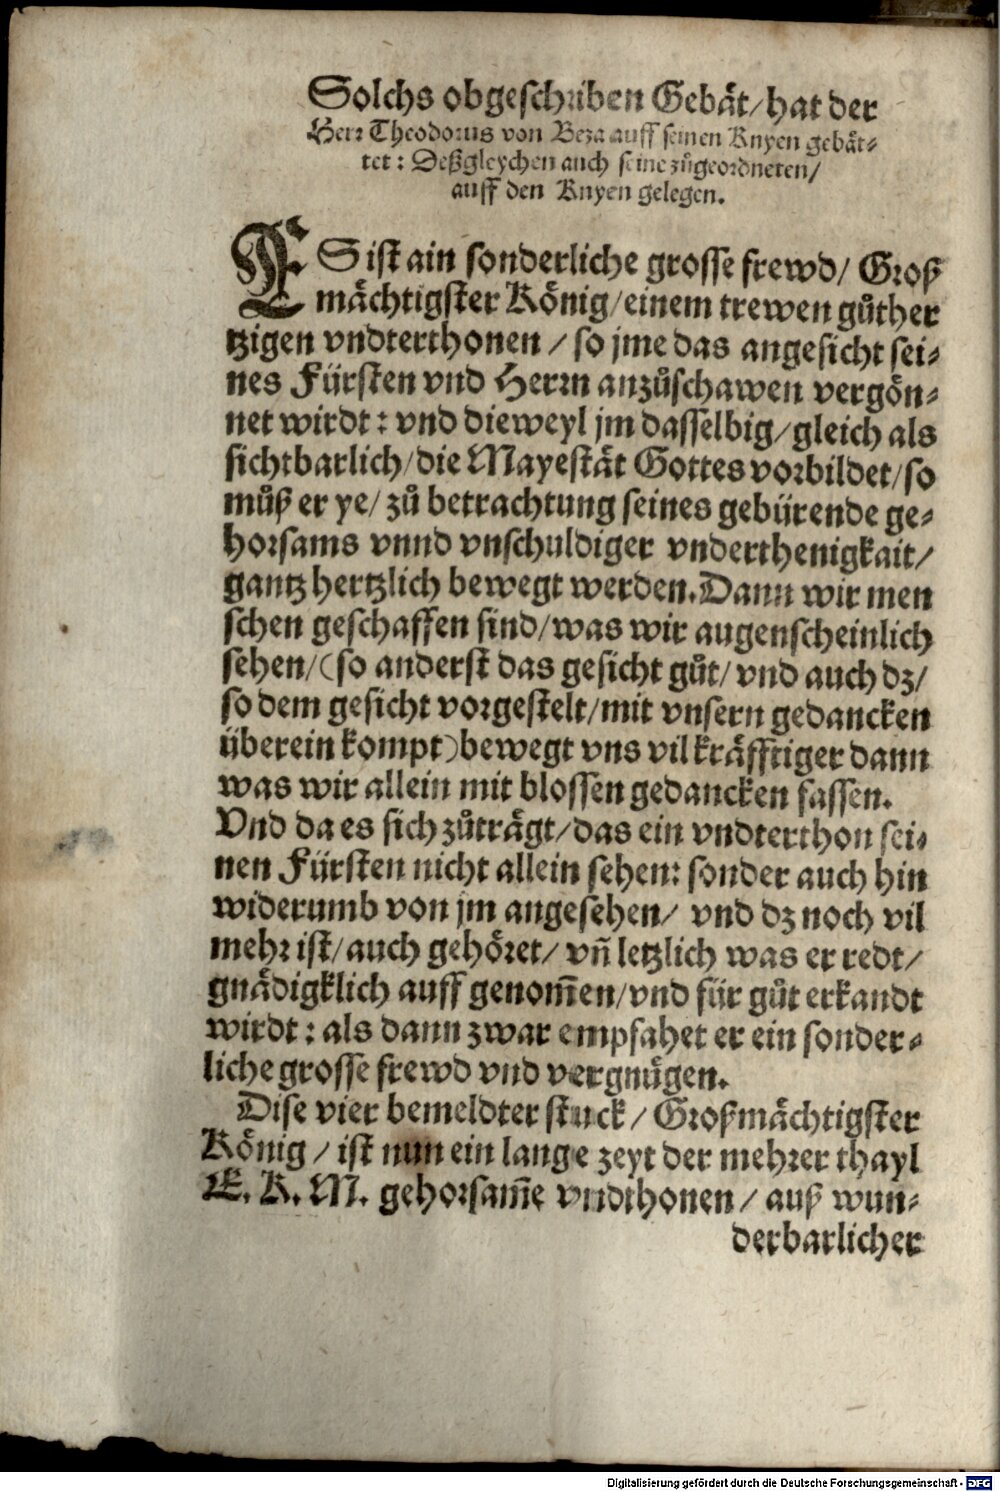 Solchs obgeschriben Gebät/ hat der
Herr Theodorus von Beza auff seinen Knyen gebät-
tet: Deßgleychen auch seine zůgeordneten/
auff den Knyen gelegen.
ES ist ain sonderliche grosse frewd/ Groß
mächtigster König/ einem trewen gůther
tzigen vndterthonen / so jme das angesicht sei-
nes Fürsten vnd Herrn anzůschawen vergön-
net wirdt: vnd dieweyl jm dasselbig/ gleich als
sichtbarlich/ die Mayestät Gottes vorbildet/ so
můß er ye/ zů betrachtung seines gebürende ge-
horsams vnnd vnschuldiger vnderthenigkait/
gantz hertzlich bewegt werden. Dann wir men
schen geschaffen sind/ was wir augenscheinlich
sehen/ (so anderst das gesicht gůt/ vnd auch dz/
so dem gesicht vorgestelt/ mit vnsern gedancken
überein kompt) bewegt vns vil kräfftiger dann
was wir allein mit blossen gedancken fassen.
Vnd da es sich zůträgt/ das ein vndterthon sei-
nen Fürsten nicht allein sehen: sonder auch hin
widerumb von jm angesehen/ vnd dz noch vil
mehr ist/ auch gehöret/ vñ letzlich was er redt/
gnädigklich auff genom̃en/ vnd für gůt erkandt
wirdt: als dann zwar empfahet er ein sonder-
liche grosse frewd vnd vergnügen.
Dise vier bemeldter stuck / Großmächtigster
König / ist nun ein lange zeyt der mehrer thayl
E. K. M. gehorsam̃e vndthonen / auß wun-
derbarlicher
Digitalisierung gefördert durch die Deutsche Forschungsgemeinschaft - DFG